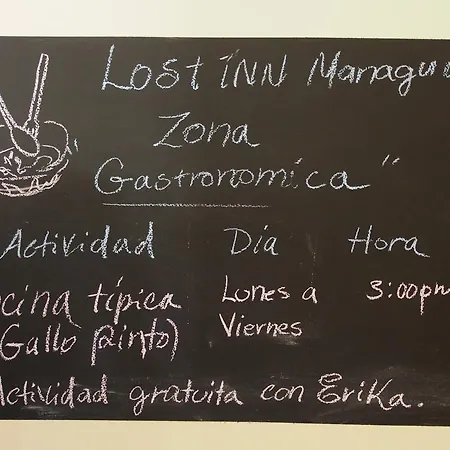 LOST INN Managu
Zona
Gastronomica"
Actividad Día Hora
cina típica Lunes a 3:00pm
Gallo pinto) Viernes
Actividad gratuita con Erika.